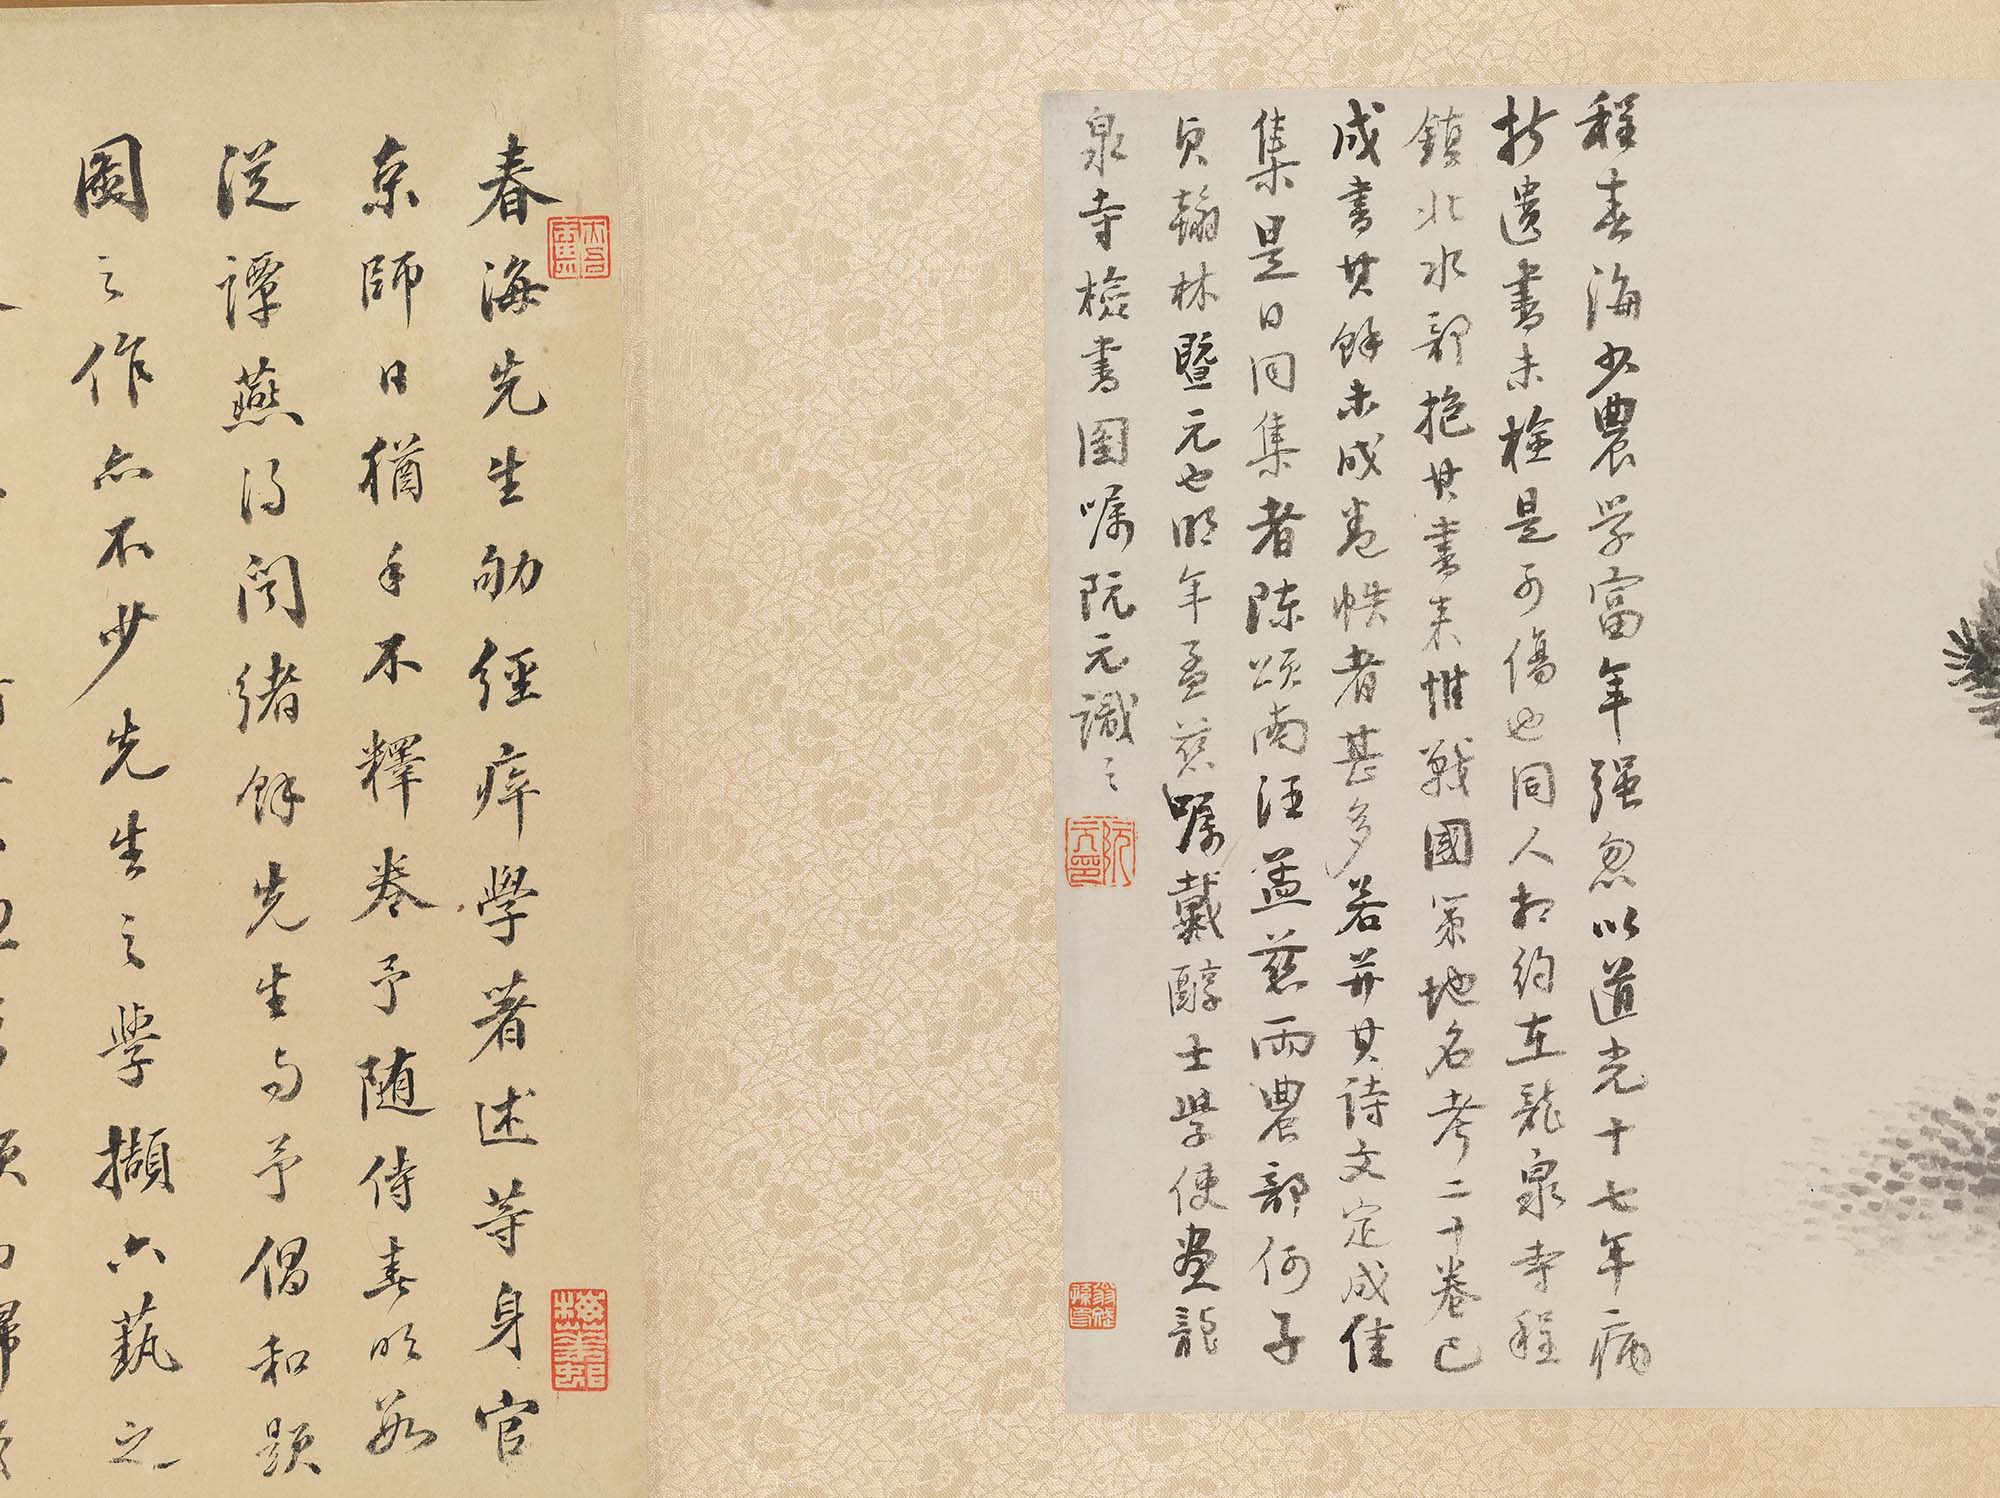 程春海少農學富年强忽以道光十七年病
折遺書未檢是可傷也同人相約在龍泉寺程
鎮北水部抱其書来惟戰國策地名考二十卷已
成書其餘未成卷帙者甚多若并其詩文定成佳
集是日同集者陳頌南汪孟慈兩農部何子
貞翰林暨元也明年孟慈嘱戴醇士學使畫龍
泉寺檢書圖嘱阮元識之
阮元印
春海先生劬經瘁學著述等身官
京師日猶手不釋卷予随侍春明數
從譚燕得聞緒餘先生与予倡和題
圖之作亦不少先生之學擷六藝之